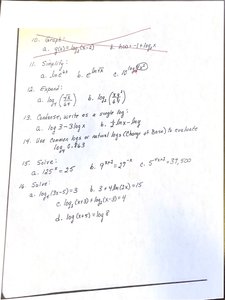 10. Graph:
a. g(x) = log₃(x-2) b. h(x) = -1 + log₂x
11. Simplify:
a. ln e⁶ˣ b. e^(ln √x) c. 10^(log
12. Expand:
a. log (√x/64) b. log
13. Condense, write as a single log:
a. log 3 - 3 log x b. ½ ln x - ln y
14. Use common logs or natural logs (Change of Base) to evaluate
log 0.863
15. Solve:
a. 125ˣ = 25 b. 9ˣ⁺² = 27⁻ˣ c. 5ˣ⁺² = 37,500
16. Solve:
a. log₄(3x-5) = 3 b. 3 + 4 ln(2x) = 15
c. log₂(x+3) + log₂(x-3) = 4
d. log(x+4) = log 8